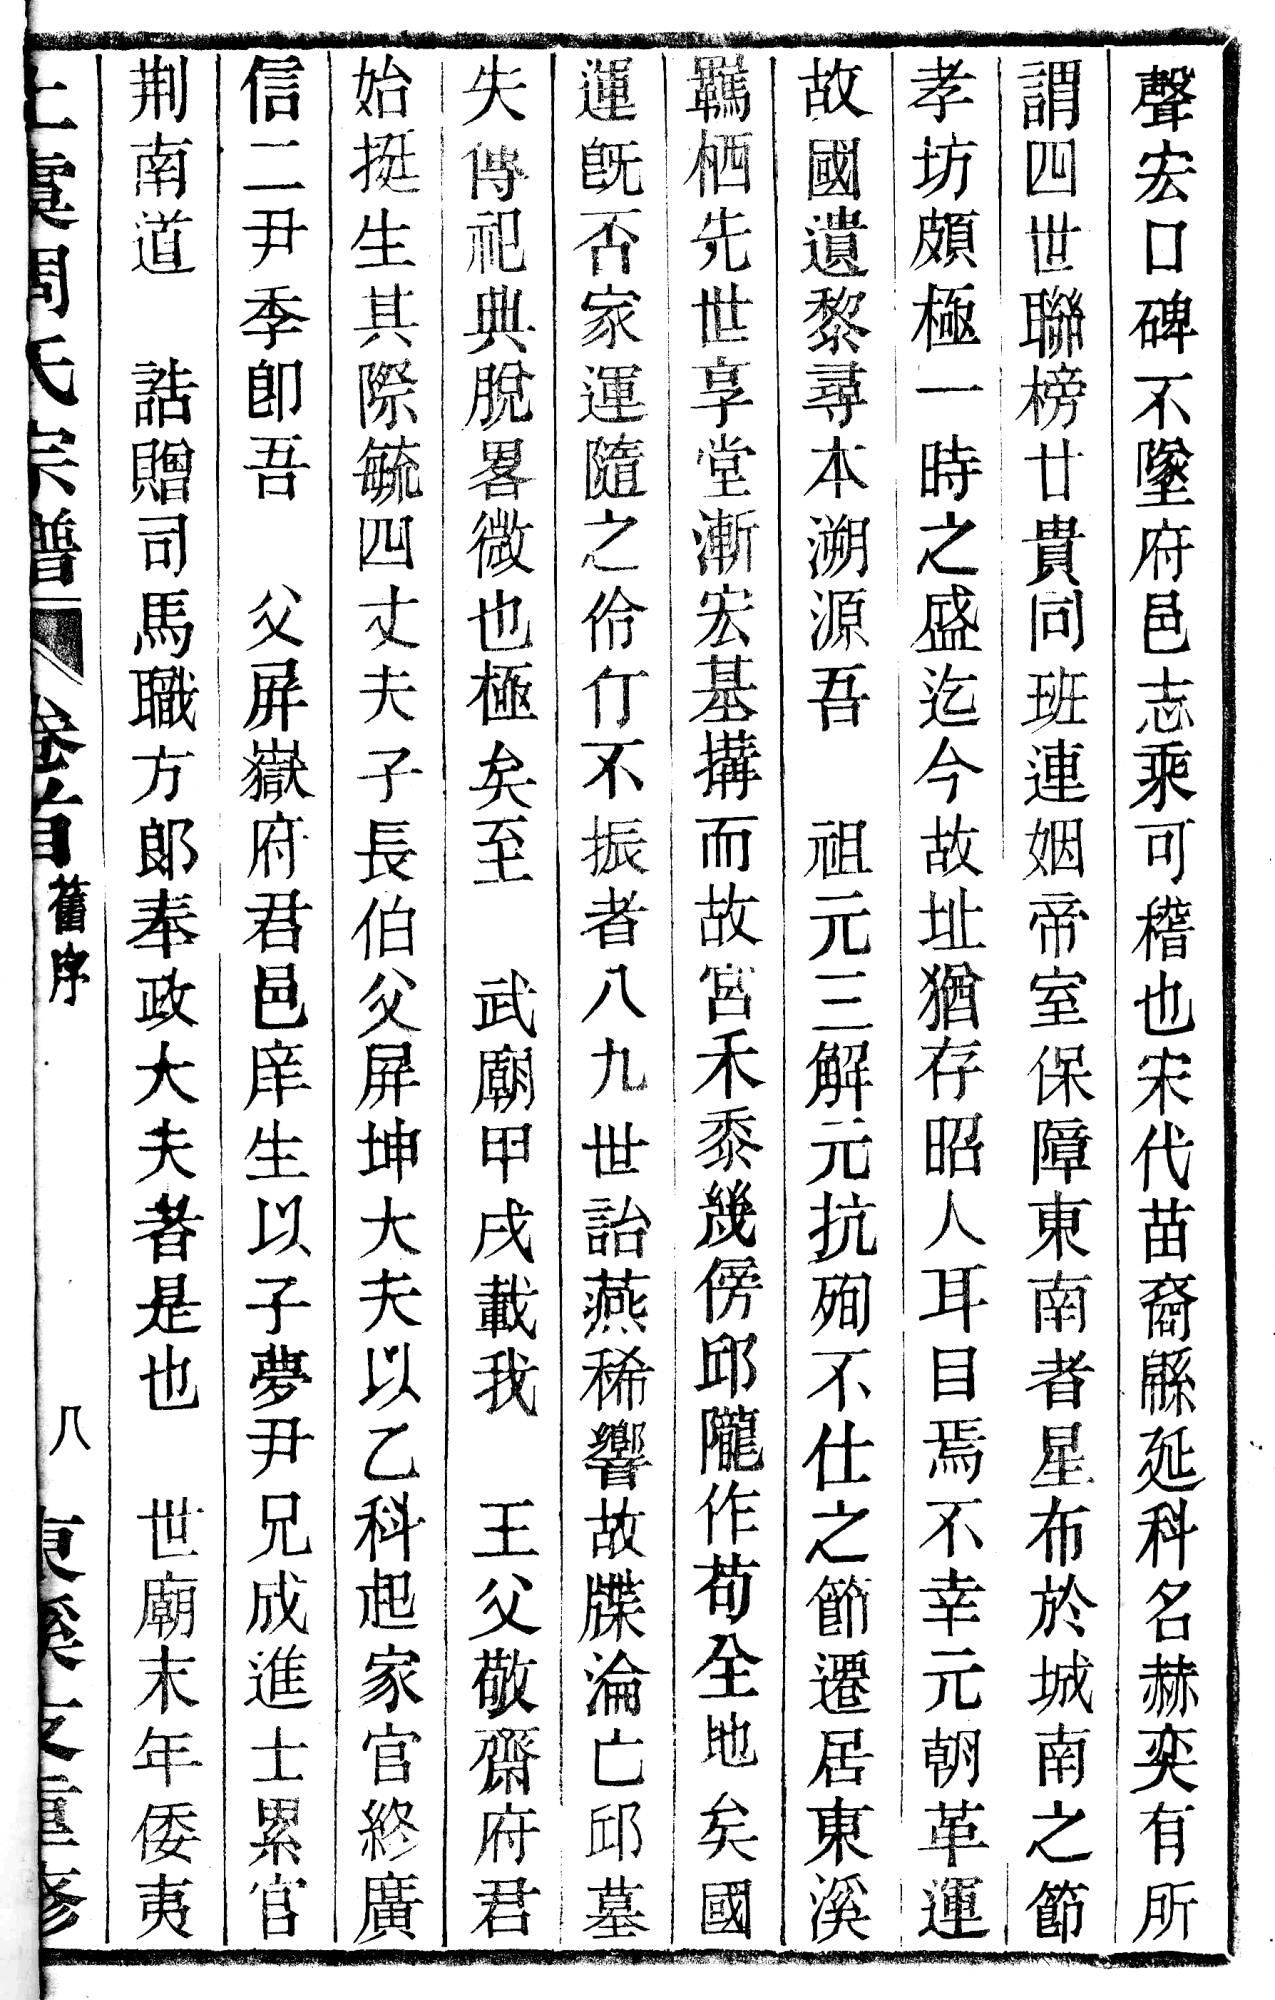 聲宏口碑不墜府邑志乘可稽也宋代苗裔緜延科名赫奕有所
謂四世聯榜廿貴同班連姻帝室保障東南者星布於城南之節
孝坊頗極一時之盛迄今故址猶存昭人耳目焉不幸元朝革運
故國遺黎尋本溯源吾　祖元三解元抗殉不仕之節遷居東溪
羈栖先世享堂漸宏基搆而故宮禾黍幾傍邱隴作苟全地矣國
運旣否家運隨之伶仃不振者八九世詒燕稀響故牒淪亡邱墓
失傳祀典脫畧微也極矣至　武廟甲戌載我　王父敬齋府君
始挺生其際毓四丈夫子長伯父屏坤大夫以乙科起家官終廣
信二尹季卽吾　父屏嶽府君邑庠生以子夢尹兄成進士累官
荆南道　誥贈司馬職方郎奉政大夫者是也　世廟末年倭夷
上虞周氏宗譜　卷首　舊序　八　東溪支重修